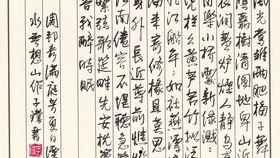 風老鶯雛雨肥梅子午
陰嘉樹清圓地卑山近
衣潤費爐煙人靜烏鳶
自樂小橋外新綠濺
濺憑欄久黃蘆苦竹擬
泛九江船年年如社燕漂
流瀚海來寄修椽且莫思
身外長近尊前憔悴
江南倦客不堪聽急管
繁弦歌筵畔先安枕簟
容我醉時眠
周邦彥滿庭芳夏日溧
水無想山作